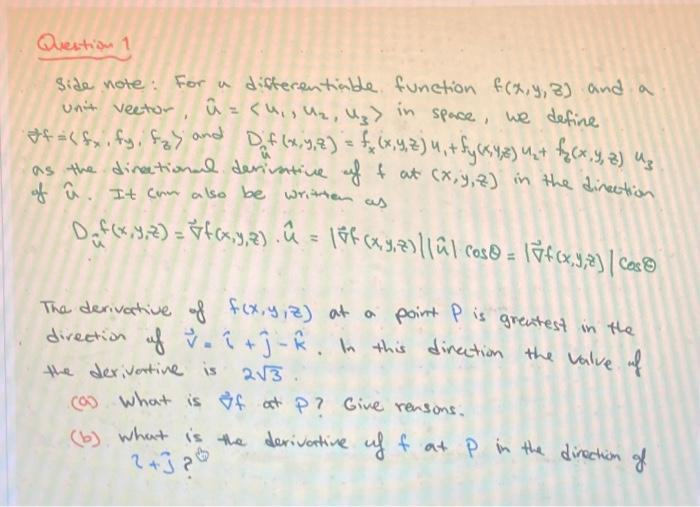 Question 1
Side note: For a differentiable function f(x,y,z) and a
unit vector, û = <u₁, u₂, u₃> in space, we define
∇⃗f = <fₓ, f_y, f_z> and D_û f(x,y,z) = fₓ(x,y,z) u₁ + f_y(x,y,z) u₂ + f_z(x,y,z) u₃
as the directional derivative of f at (x,y,z) in the direction
of û. It can also be written as
D_û f(x,y,z) = ∇⃗f(x,y,z) . û = |∇⃗f(x,y,z)||û| cosθ = |∇⃗f(x,y,z)| cosθ
The derivative of f(x,y,z) at a point P is greatest in the
direction of v⃗ = î + ĵ - k̂. In this direction the value of
the derivative is 2√3.
(a) What is ∇⃗f at P? Give reasons.
(b) What is the derivative of f at P in the direction of
î + ĵ ?